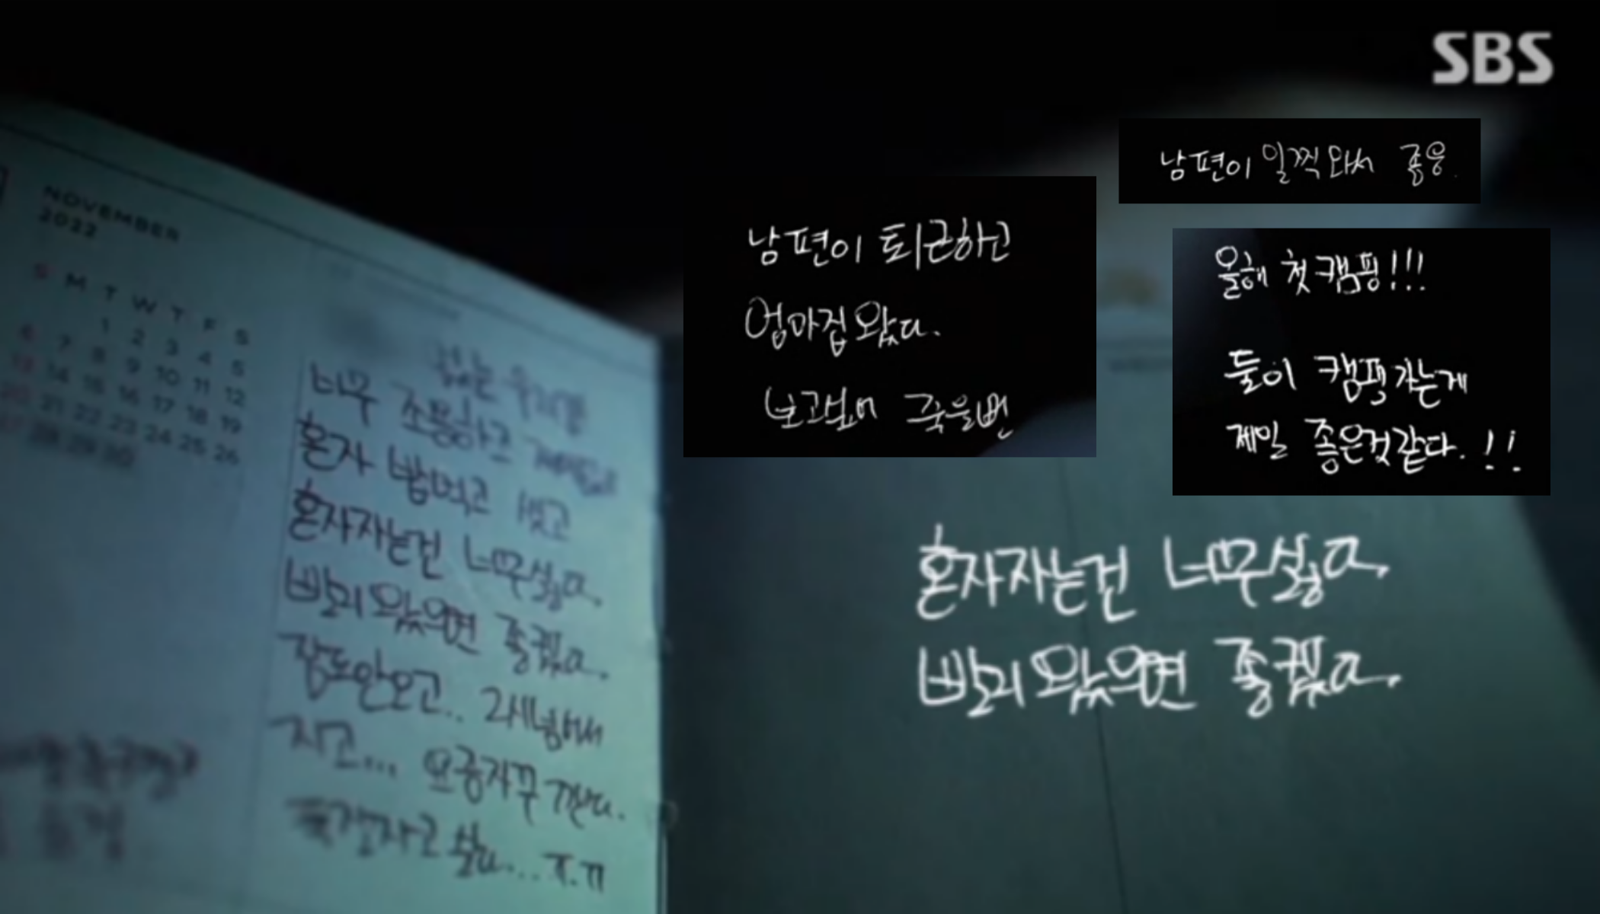 SBS
NOVEMBER
2022
S M T W T F S
1 2 3 4 5
6 7 8 9 10 11 12
13 14 15 16 17 18 19
20 21 22 23 24 25 26
27 28 29 30
너무 조용하고
혼자 밥먹고 씻고
혼자자는건 너무싫다.
빨리왔으면 좋겠다.
잠도안오고.. 2시넘어서
자고... 요즘자꾸 깬다.
싶다... ㅠ.ㅠ
남편이 퇴근하고
엄마집왔다.
보고싶어 죽을뻔
남편이 일찍와서 좋음.
올해 첫캠핑!!!
둘이 캠핑가는게
제일 좋은것같다.!!
혼자자는건 너무싫다.
빨리왔으면 좋겠다.